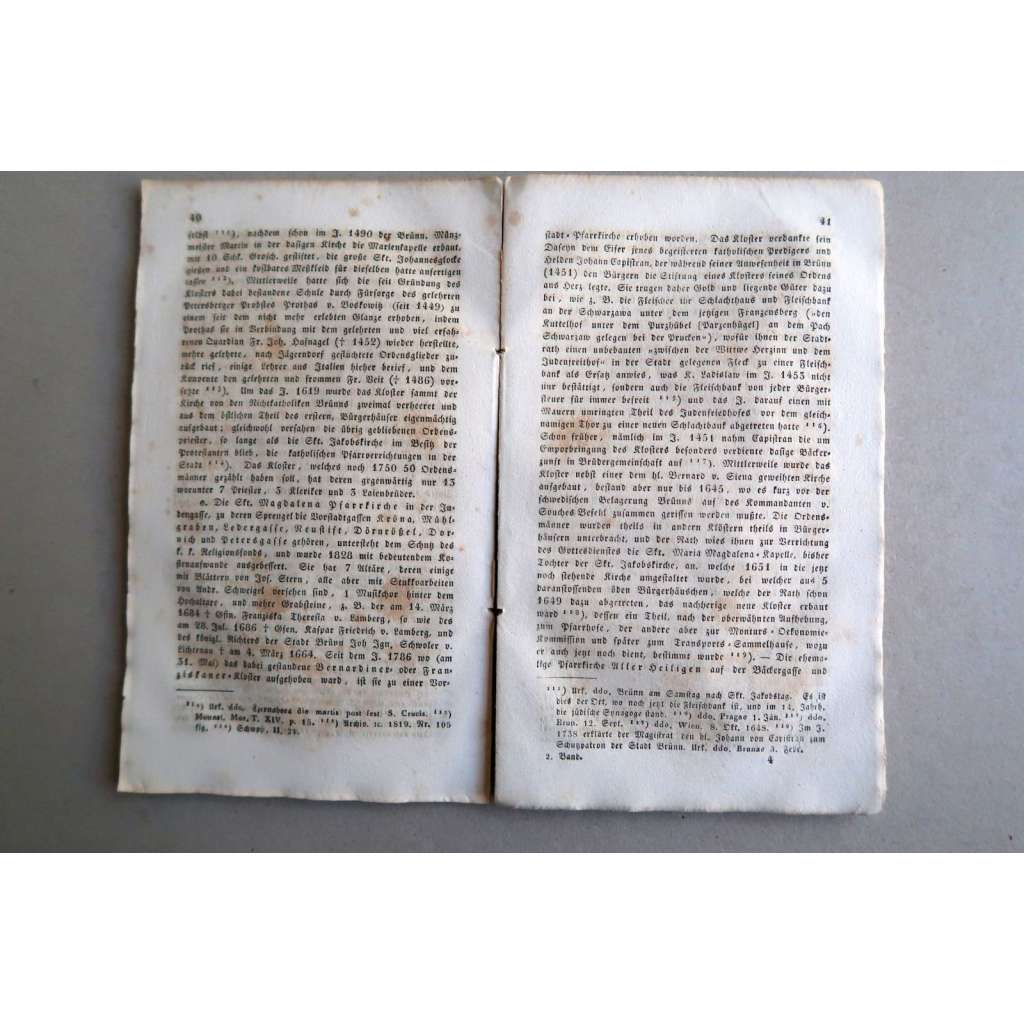 40
selbst ¹¹¹), nachdem schon im J. 1490 der Brünn. Münz-
meister Martin in der dasigen Kirche die Marienkapelle erbaut,
mit 10 Schk. Grosch. gestiftet, die große Skt. Johannesglocke
gießen und ein kostbares Meßkleid für dieselben hatte anfertigen
lassen ¹¹²). Mittlerweile hatte sich die seit Gründung des
Klosters dabei bestandene Schule durch Fürsorge des gelehrten
Petersberger Probstes Prothas v. Boskowitz (seit 1449) zu
einem seit dem nicht mehr erlebten Glanze erhoben, indem
Prothas sie in Verbindung mit dem gelehrten und viel erfah-
renen Quardian Fr. Joh. Hasnagel († 1452) wieder herstellte,
mehre gelehrte, nach Jägerndorf geflüchtete Ordensglieder zu-
rück rief, einige Lehrer aus Italien hieher berief, und dem
Konvente den gelehrten und frommen Fr. Veit († 1486) vor-
setzte ¹¹³). Um das J. 1619 wurde das Kloster sammt der
Kirche von den Nichtkatholiken Brünns zweimal verheeret und
aus dem östlichen Theil des erstern, Bürgerhäuser eigenmächtig
aufgebaut; gleichwohl versahen die übrig gebliebenen Ordens-
priester, so lange als die Skt. Jakobskirche im Besitz der
Protestanten blieb, die katholischen Pfarrverrichtungen in der
Stadt ¹¹⁴). Das Kloster, welches noch 1750 50 Ordens-
männer gezählt haben soll, hat deren gegenwärtig nur 13
worunter 7 Priester, 3 Kleriker und 3 Laienbrüder.
o. Die Skt. Magdalena Pfarrkirche in der Ju-
dengasse, zu deren Sprengel die Vorstadtgassen Kröna, Mühl-
graben, Ledergasse, Neustift, Dörnrößel, Dor-
nich und Petersgasse gehören, untersteht dem Schutz des
k. k. Religionsfonds, und wurde 1828 mit bedeutendem Ko-
stenaufwande ausgebessert. Sie hat 7 Altäre, deren einige
mit Blättern von Jos. Stern, alle aber mit Stukkoarbeiten
von Andr. Schweigel versehen sind, 1 Musikchor hinter dem
Hochaltare, und mehre Grabsteine, z. B. der am 14. März
1684 † Gfin. Franziska Theresia v. Lamberg, so wie des
am 28. Jul. 1686 † Gfen. Kaspar Friedrich v. Lamberg, und
des königl. Richters der Stadt Brünn Joh Ign. Schwoler v.
Lichtenau † am 4. März 1664. Seit dem J. 1786 wo (am
31. Mai) das dabei gestandene Bernardiner- oder Fran-
ziskaner-Kloster aufgehoben ward, ist sie zu einer Vor-
Urk. ddo. Czernahora die martis post fest. S. Crucis. ¹¹²)
Monast. Mor. T. XIV. p. 15. ¹¹³) Archiv. 2c. 1819. Nr. 105
fig. ¹¹⁴) Schupp, II. 2v.
41
stadt-Pfarrkirche erhoben worden. Das Kloster verdankte sein
Daseyn dem Eifer jenes begeisterten katholischen Predigers und
Helden Johann Capistran, der während seiner Anwesenheit in Brünn
(1451) den Bürgern die Stiftung eines Klosters seines Ordens
ans Herz legte. Sie trugen daher Gold und liegende Güter dazu
bei, wie z. B. die Fleischer ihr Schlachthaus und Fleischbank
an der Schwarzawa unter dem jetzigen Franzensberg (»den
Kuttelhof unter dem Purzhübel [Parzenhügel] an dem Pach
Schwarzaw gelegen bei der Prucken«), wofür ihnen der Stadt-
rath einen unbebauten »zwischen der Wittwe Herzinn und dem
Judenfreithof« in der Stadt gelegenen Fleck zu einer Fleisch-
bank als Ersatz anwies, was K. Ladislaw im J. 1453 nicht
nur bestätigt, sondern auch die Fleischbank von jeder Bürger-
steuer für immer befreit ¹¹⁵) und das J. darauf einen mit
Mauern umringten Theil des Judenfreidhofes vor dem gleich-
namigen Thor zu einer neuen Schlachtbank abgetreten hatte ¹¹⁶).
Schon früher, nämlich im J. 1451 nahm Capistran die um
Emporbringung des Klosters besonders verdiente dasige Bäcker-
zunft in Brüdergemeinschaft auf ¹¹⁷). Mittlerweile wurde das
Kloster nebst einer dem hl. Bernard v. Siena geweihten Kirche
aufgebaut, bestand aber nur bis 1645, wo es kurz vor der
schwedischen Belagerung Brünns auf des Kommandanten v.
Souches Befehl zusammen gerissen werden mußte. Die Ordens-
männer wurden theils in andern Klöstern theils in Bürger-
häusern untebracht, und der Rath wies ihnen zur Verrichtung
des Gottesdienstes die Skt. Maria Magdalena-Kapelle, bisher
Tochter der Skt. Jakobskirche, an, welche 1651 in die jetzt
noch stehende Kirche umgestaltet wurde, bei welcher aus 5
daranstossenden öden Bürgerhäuschen, welche der Rath schon
1649 dazu abgetreten, das nachherige neue Kloster erbaut
ward ¹¹⁸), dessen ein Theil, nach der oberwähnten Aufhebung,
zum Pfarrhofe, der andere aber zur Monturs-Oekonomie-
Kommission und später zum Transports-Sammelhause, wozu
er auch jetzt noch dient, bestimmt wurde ¹¹⁹). — Die ehema-
lige Pfarrkirche Aller Heiligen auf der Bäckergasse und
¹¹⁵) Urk. ddo. Brünn am Samstag nach Skt. Jakobstag. Es ist
dies der Ort, wo noch jetzt die Fleischbank ist, und im 14. Jahrh.
die jüdische Synagoge stand. ¹¹⁶) ddo. Pragae 1. Jän. ¹¹⁷) ddo.
Brun. 12. Sept. ¹¹⁸) ddo. Wien. 8. Okt. 1648. ¹¹⁹) Im J.
1738 erklärte der Magistrat den hl. Johann von Capistran zum
Schutzpatron der Stadt Brünn. Urk. ddo. Brunae 3. Febr.
2. Band. 4